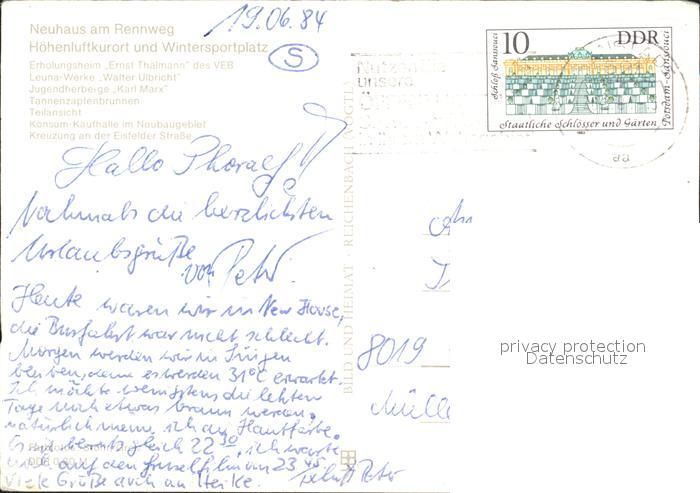 19.06.84
Neuhaus am Rennweg
Höhenluftkurort und Wintersportplatz
S
Erholungsheim „Ernst Thälmann" des VEB
Leuna-Werke „Walter Ulbricht"
Jugendherberge „Karl Marx"
Tannenzapfenbrunnen
Teilansicht
Konsum-Kaufhalle im Neubaugebiet
Kreuzung an der Eisfelder Straße
10
DDR
Schloß Sanssouci
Potsdam-Sanssouci
Staatliche Schlösser und Gärten
1983
Nutzen Sie
unsere
aa
Hallo
Nochmals die herzlichsten
Urlaubsgrüße
von Peter.
Heute waren wir in New House,
die Busfahrt war nicht schlecht.
Morgen werden wir in
bleiben, denn es werden 31°C erwartet.
Ich möchte wenigstens die letzten
Tage noch etwas braun werden.
natürlich meine ich an Hautfarbe.
Es ist bereits gleich 22 30, ich warte
noch auf den Gruselfilm um 23 45.
Viele Grüße auch an Heike.
Peter
BILD UND HEIMAT · REICHENBACH (VOGTL
8019
Mülle
privacy protection
Datenschutz